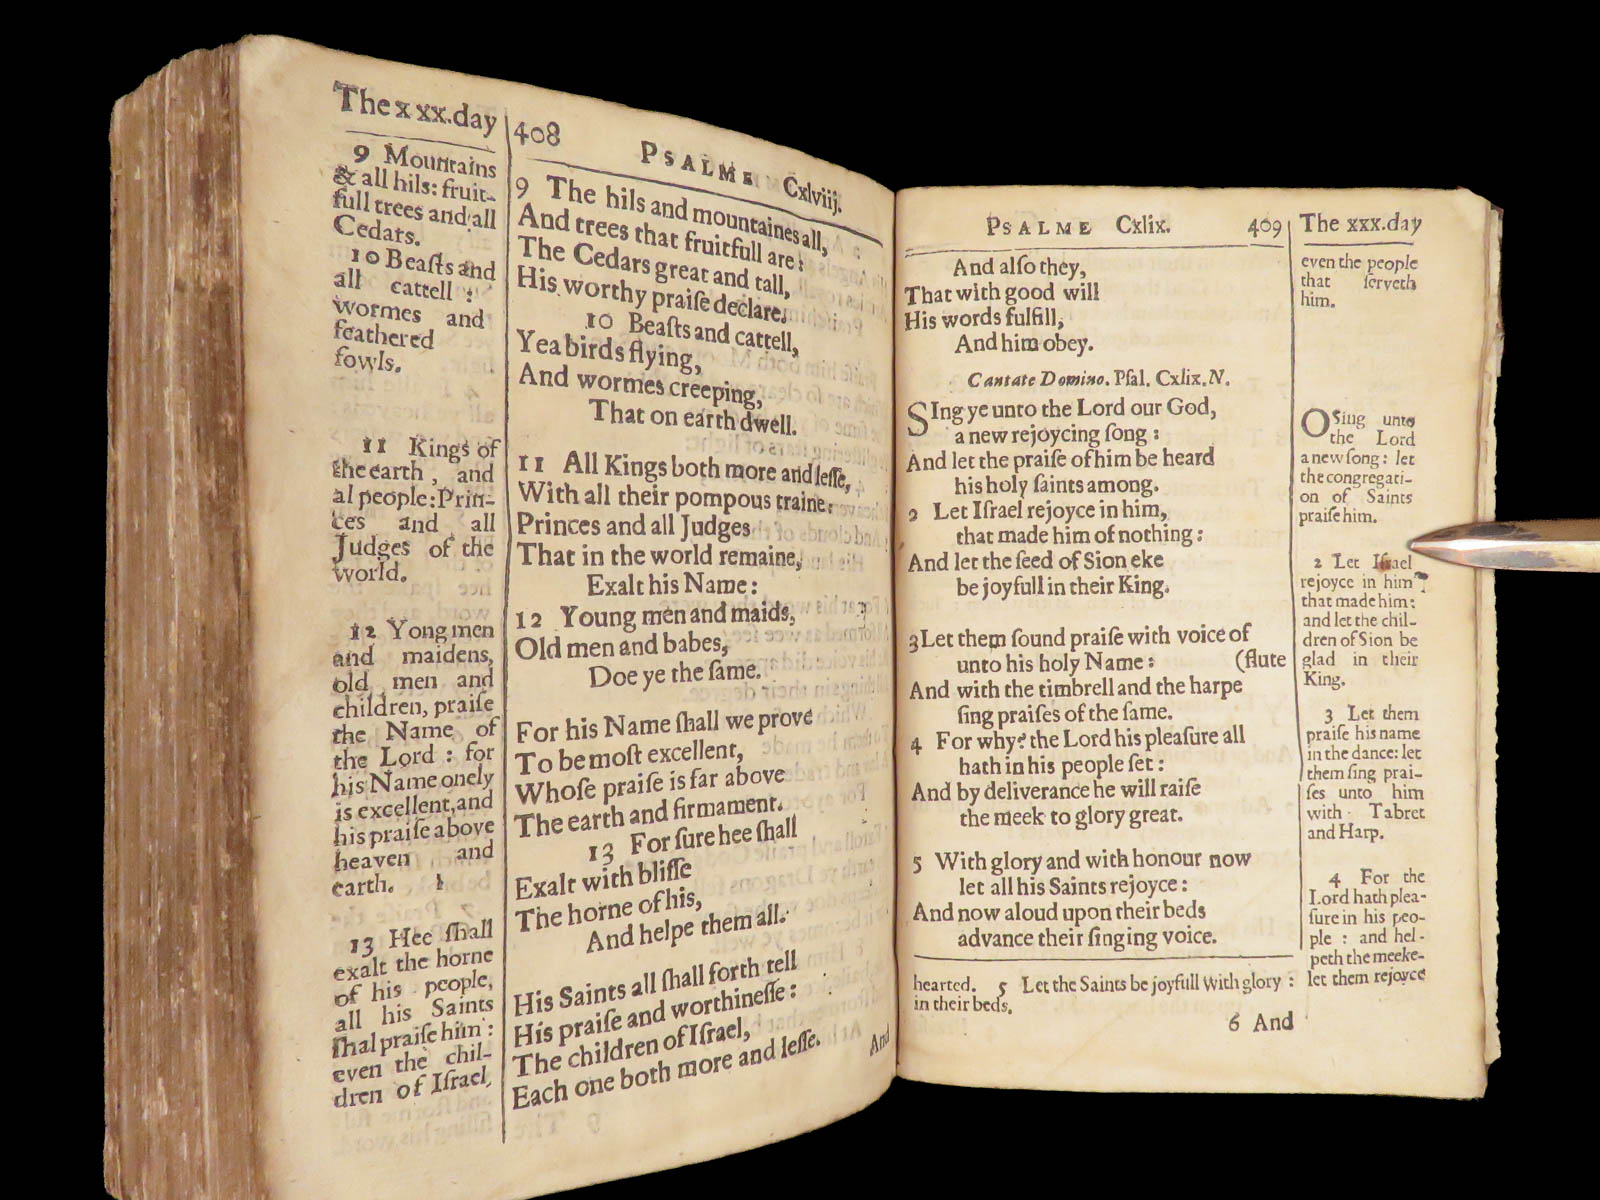 The xxx.day
9 Mountains
& all hils: fruit-
full trees and all
Cedars.
10 Beaſts and
all cattell :
wormes and
feathered
fowls.
11 Kings of
the earth, and
al people: Prin-
ces and all
Judges of the
world.
12 Yong men
and maidens,
old men and
children, praiſe
the Name of
the Lord : for
his Name onely
is excellent, and
his praiſe above
heaven and
earth.
13 Hee ſhall
exalt the horne
of his people,
all his Saints
ſhal praiſe him :
even the chil-
dren of Iſrael,
408
PSALME Cxlviij.
9 The hils and mountaines all,
And trees that fruitfull are :
The Cedars great and tall,
His worthy praiſe declare.
10 Beaſts and cattell,
Yea birds flying,
And wormes creeping,
That on earth dwell.
11 All Kings both more and leſſe,
With all their pompous traine :
Princes and all Judges
That in the world remaine,
Exalt his Name :
12 Young men and maids,
Old men and babes,
Doe ye the ſame.
For his Name ſhall we prove
To be moſt excellent,
Whoſe praiſe is far above
The earth and firmament.
13 For ſure hee ſhall
Exalt with bliſſe
The horne of his,
And helpe them all.
His Saints all ſhall forth tell
His praiſe and worthineſſe :
The children of Iſrael,
Each one both more and leſſe.
And
PSALME Cxlix. 409
And alſo they,
That with good will
His words fulfill,
And him obey.
Cantate Domino. Pſal. Cxlix. N.
SIng ye unto the Lord our God,
a new rejoycing ſong :
And let the praiſe of him be heard
his holy ſaints among.
2 Let Iſrael rejoyce in him,
that made him of nothing :
And let the ſeed of Sion eke
be joyfull in their King.
3 Let them ſound praiſe with voice of
unto his holy Name : (flute
And with the timbrell and the harpe
ſing praiſes of the ſame.
4 For why? the Lord his pleaſure all
hath in his people ſet :
And by deliverance he will raiſe
the meek to glory great.
5 With glory and with honour now
let all his Saints rejoyce :
And now aloud upon their beds
advance their ſinging voice.
The xxx.day
even the people
that ſerveth
him.
O Sing unto
the Lord
a new ſong : let
the congregati-
on of Saints
praiſe him.
2 Let Iſrael
rejoyce in him
that made him :
and let the chil-
dren of Sion be
glad in their
King.
3 Let them
praiſe his name
in the dance: let
them ſing prai-
ſes unto him
with Tabret
and Harp.
4 For the
Lord hath plea-
ſure in his peo-
ple : and hel-
peth the meeke-
hearted. 5 Let the Saints be joyfull with glory : let them rejoyce
in their beds.
6 And